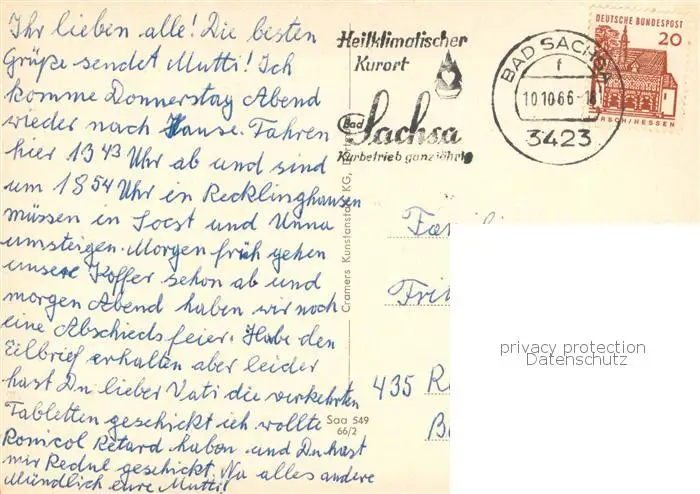 Ihr lieben alle! Die besten
Grüße sendet Mutti! Ich
komme Donnerstag Abend
wieder nach Hause. Fahren
hier 13 43 Uhr ab und sind
um 18 54 Uhr in Recklinghausen
müssen in Soest und Unna
umsteigen. Morgen früh gehen
unsere Koffer schon ab und
morgen Abend haben wir noch
eine Abschiedsfeier. Habe den
Eilbrief erhalten aber leider
hast Du lieber Vati die verkehrten
Tabletten geschickt ich wollte
Ronicol Retard haben und Du hast
mir Redul geschickt. Na alles andere
Mündlich eure Mutti!
Heilklimatischer
Kurort
Bad
Sachsa
Kurbetrieb ganzjährig
BAD SACHSA
f
10.10.66-18
3423
DEUTSCHE BUNDESPOST
20
RSCH/HESSEN
Cramers Kunstanstalt KG,
Saa 549
66/2
Fa
Frit
435 R
privacy protection
Datenschutz